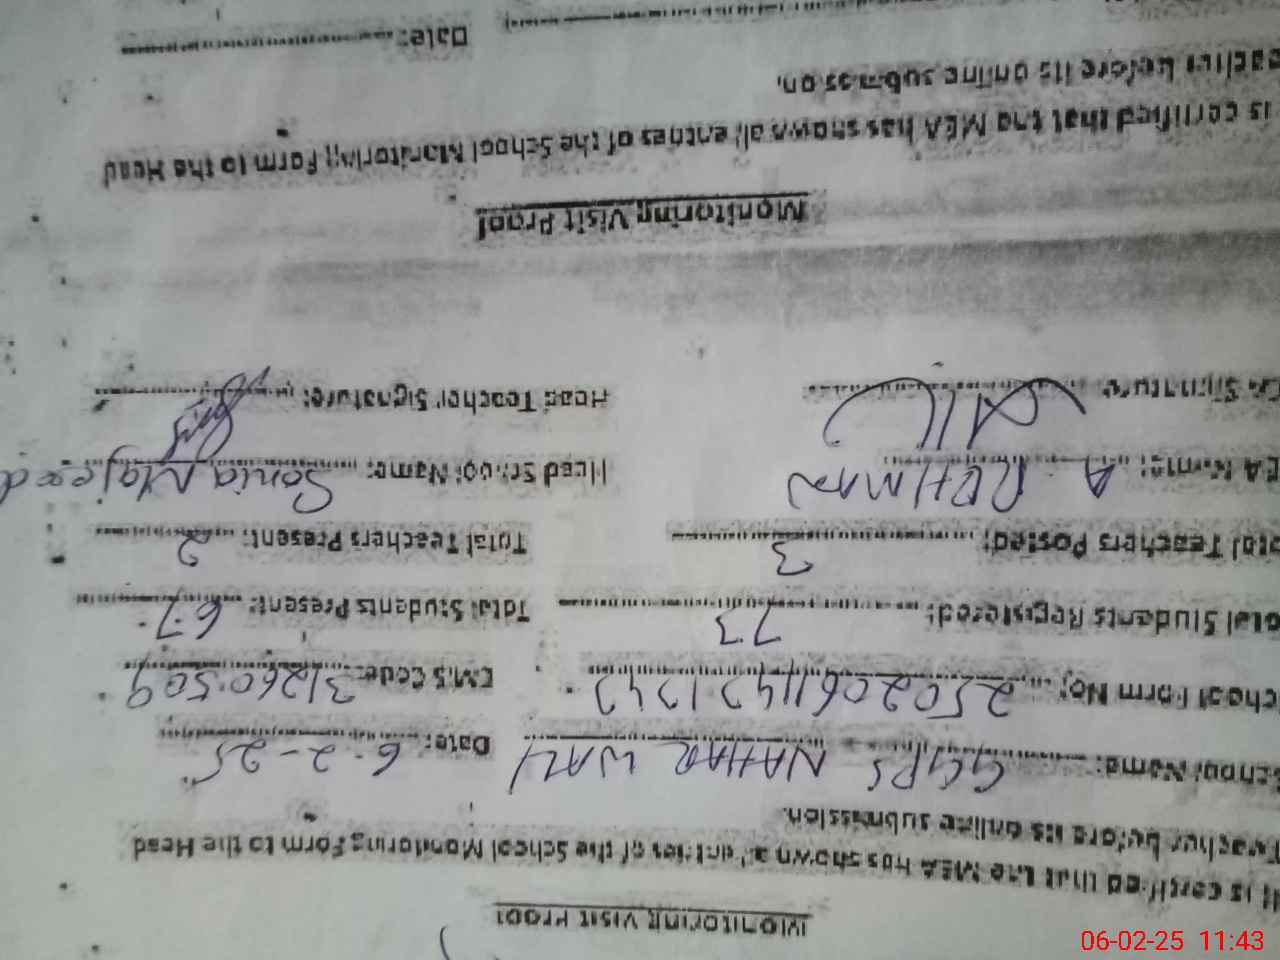 Monitoring Visit Proof
It is certified that the MEA has shown all entries of the School Monitoring Form to the Head
Teacher before its online submission.
School Name: GGPS NAHAR WALI Date: 6-2-25
chool Form No: EMIS Code: 31260509
otal Students Registered: 73 Total Students Present: 67
otal Teachers Posted: 3 Total Teachers Present: 2
EA Name: A REHMAN Head School Name: Sonia Majeed
Signature: Head Teacher Signature:
Monitoring Visit Proof
is certified that the MEA has shown all entries of the School Monitoring Form to the Head
eacher before its online submission.
Date:
06-02-25 11:43